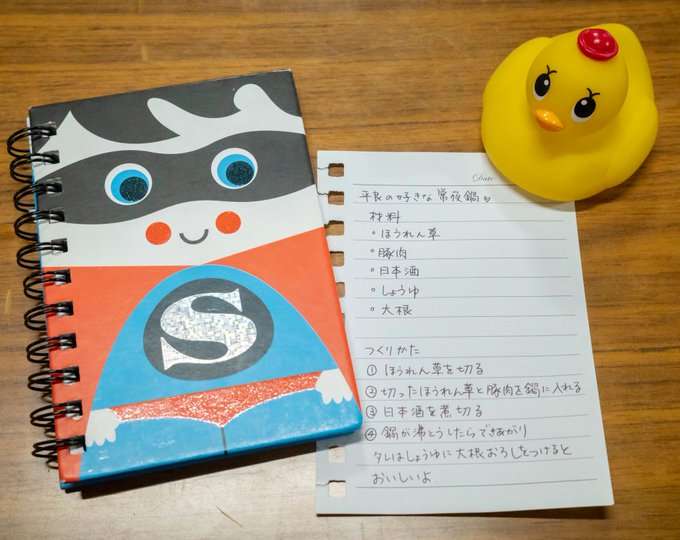 S
平良の好きな常夜鍋
材料
・ほうれん草
・豚肉
・日本酒
・しょうゆ
・大根
つくりかた
① ほうれん草を切る
② 切ったほうれん草と豚肉を鍋に入れる
③ 日本酒を煮切る
④ 鍋が沸とうしたらできあがり
タレはしょうゆに大根おろしをつけると
おいしいよ